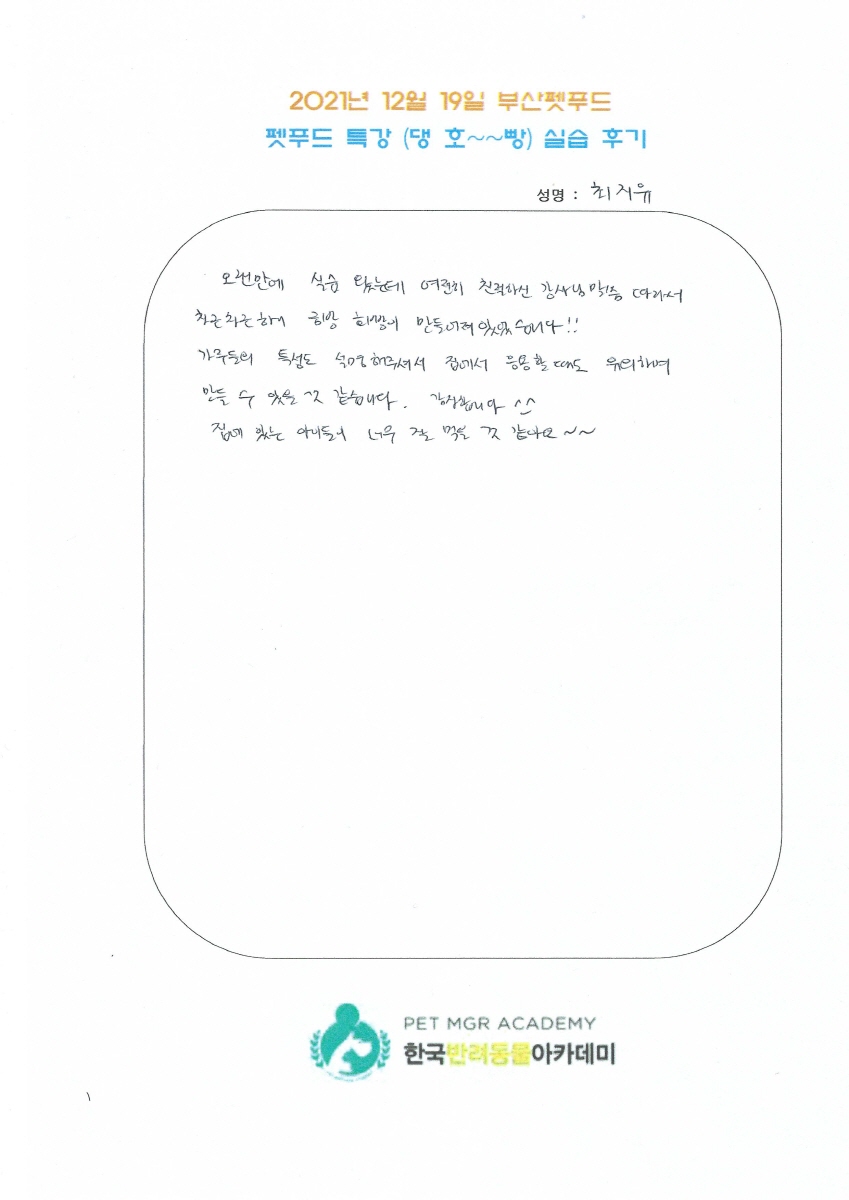 2021년 12월 19일 부산펫푸드
펫푸드 특강 (댕 호~~빵) 실습 후기
성명 : 최지유
오랜만에 실습 왔는데 여전히 친절하신 강사님 말씀 따라서
차근차근하니 금방 만들어져있었습니다!!
가루들의 특성도 설명해주셔서 집에서 응용할때도 유의하며
만들 수 있을 것 같습니다. 감사합니다 ^^
집에 있는 아이들이 너무 잘 먹을 것 같아요~~
PET MGR ACADEMY
한국반려동물아카데미